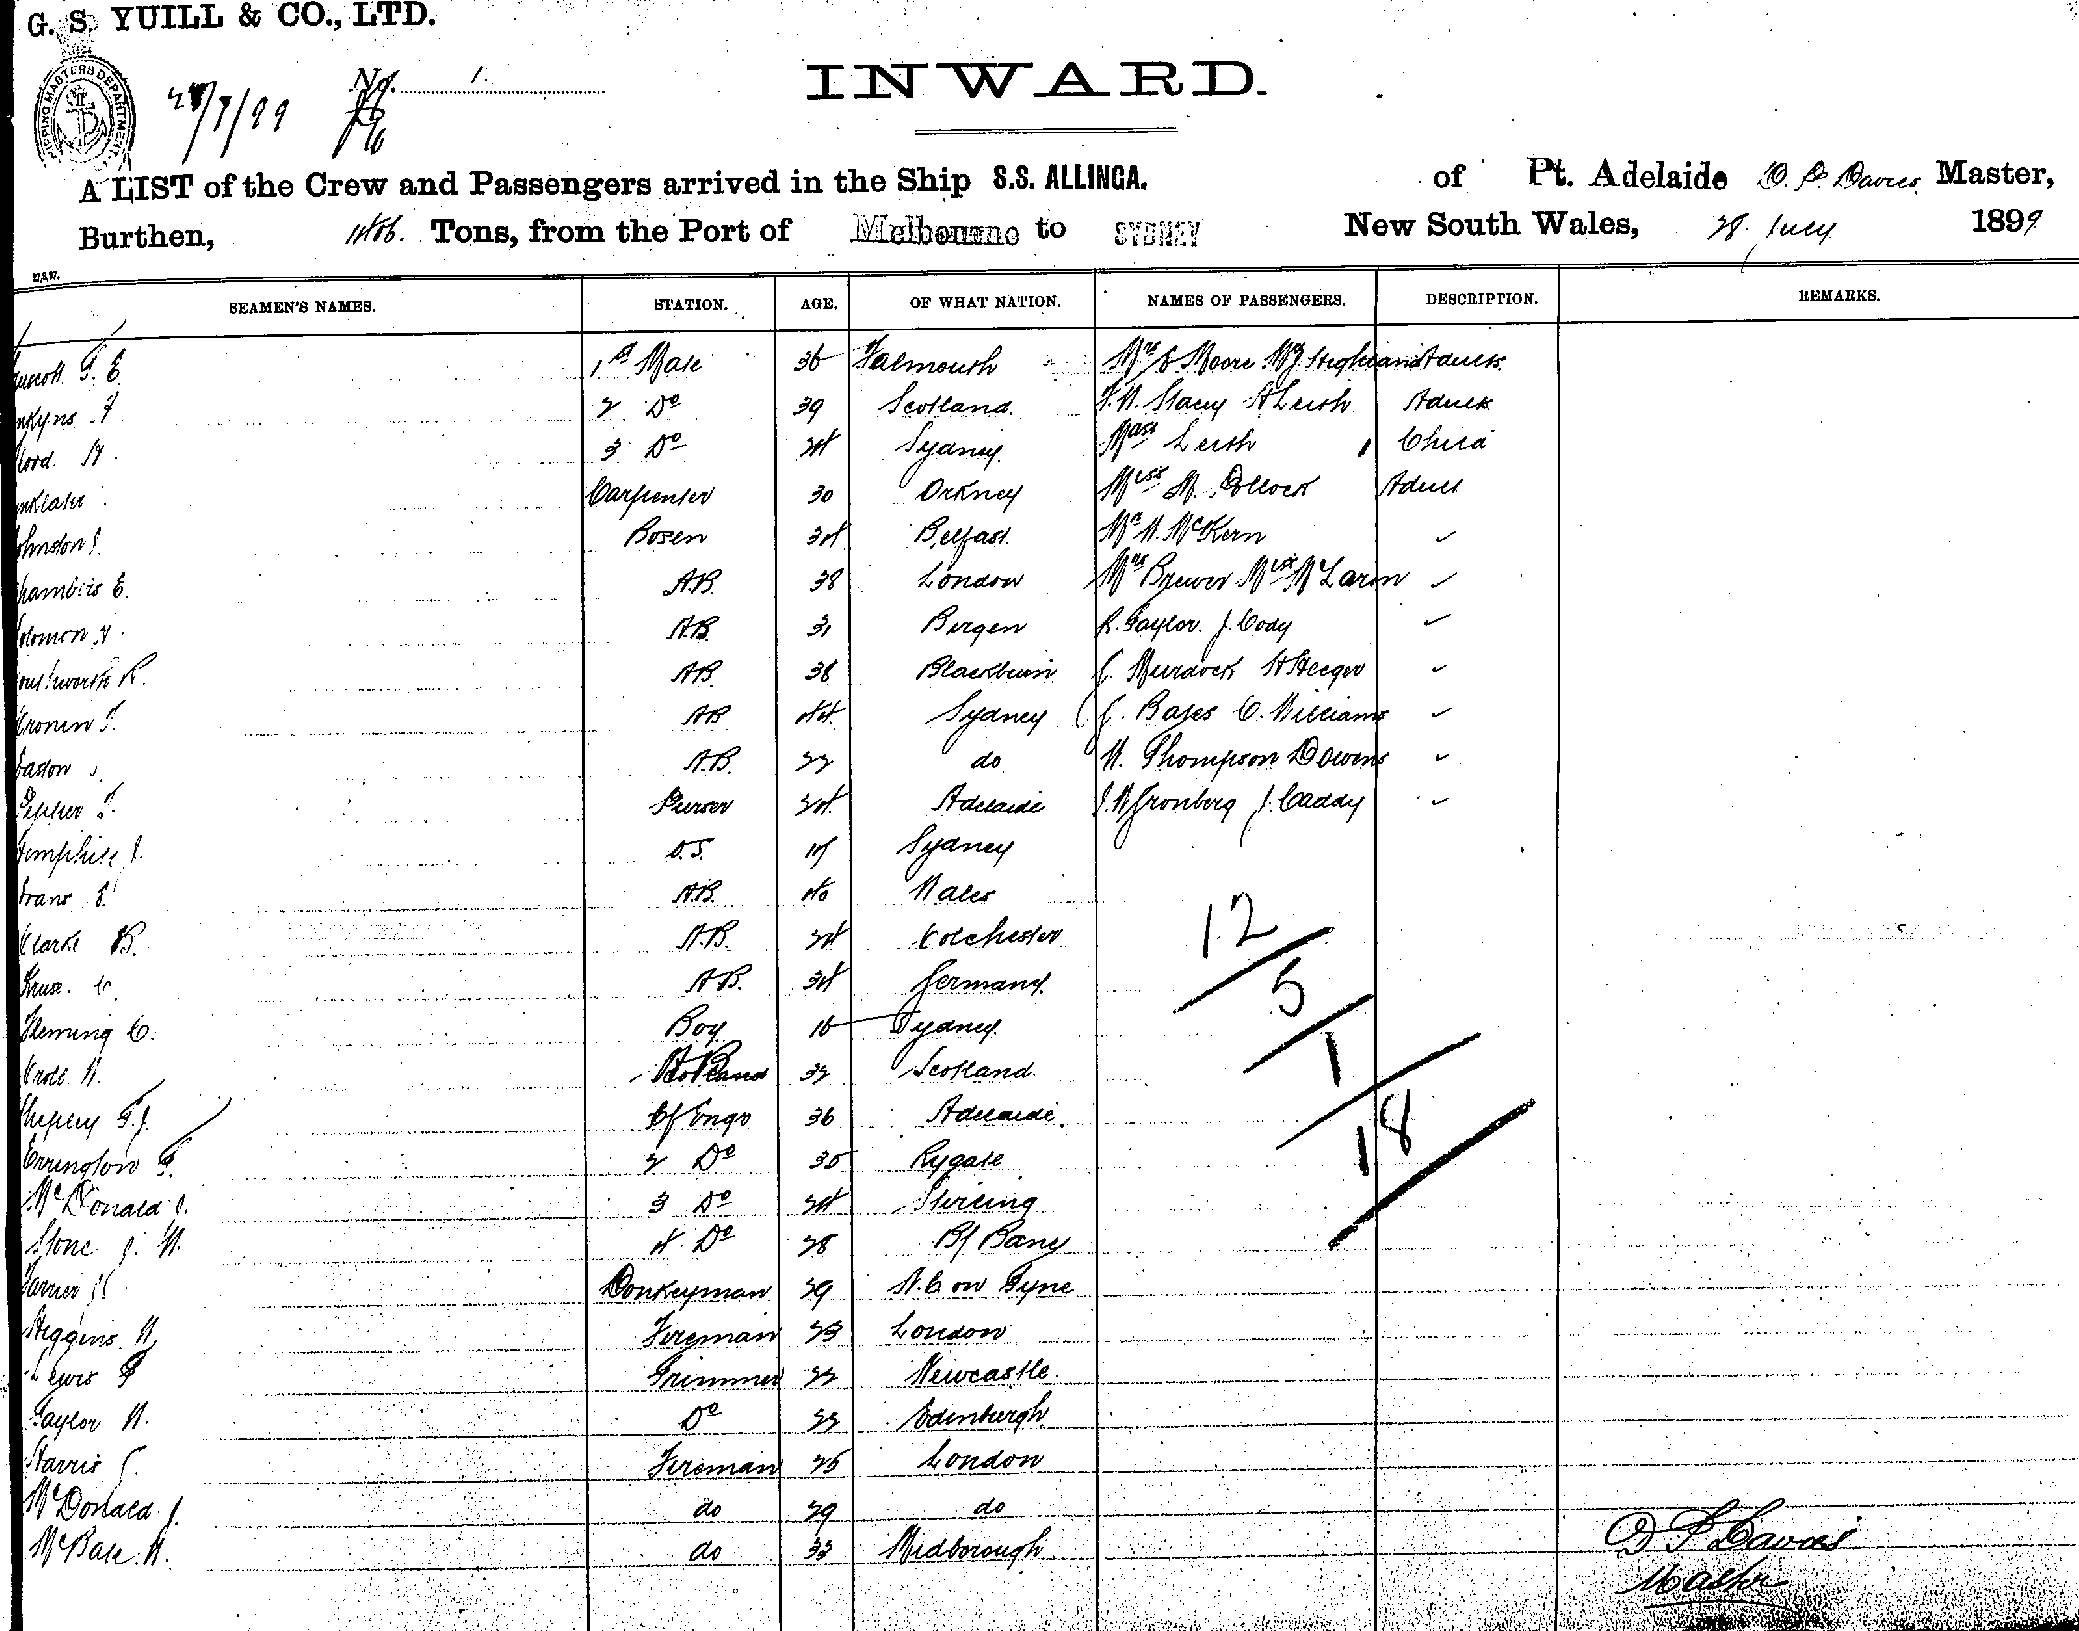 G. S. YUILL & CO., LTD.
SHIPPING MASTERS DEPARTMENT
28/7/99 No. 1.
INWARD.
A LIST of the Crew and Passengers arrived in the Ship S.S. ALLINGA. of Pt. Adelaide D. P. Davies Master,
Burthen, Tons, from the Port of Melbourne to SYDNEY New South Wales, 28. July 1899
SEAMEN'S NAMES. STATION. AGE. OF WHAT NATION. NAMES OF PASSENGERS. DESCRIPTION. REMARKS.
T. E. 1st Mate 36 Falmouth Moore Adults
2 Do 39 Scotland. Stacy Leish Adults
3 Do 24 Sydney Leish Child
Carpenter 30 Orkney Miss M. Pollock Adult
Johnston J. Bosen 34 Belfast. W. McKern ✓
Chambers E. A.B. 38 London Mrs Brewer Miss McLaren ✓
Solomon A.B. 31 Bergen R. Taylor. J. Cody ✓
Southworth R. A.B. 38 Blackburn Murdock ✓
Cronin T. A.B. 44 Sydney Bates C. Williams ✓
Easton A.B. 22 do W. Thompson D Owens ✓
Pepper T. Purser 24 Adelaide Gronberg J. Caddy ✓
Hemphill J. O.S. 17 Sydney
Evans A.B. 40 Wales
Clarke B. A.B. 24 Colchester
Kruse. C. A.B. 34 Germany.
Fleming C. Boy 16 Sydney.
Croll W. 32 Scotland
T. J. Cf Engr 36 Adelaide.
Errington T. 2 Do 35 Rygate
McDonald J. 3 Do 24 Stirling
Stone J. W. 4 Do 28
Donkeyman 29 N. C on Tyne
Higgins W. Fireman 23 London
Lewis Trimmer 22 Newcastle.
Taylor W. Do 22 Edinburgh
Harris Fireman 25 London
McDonald J. do 29 do
McBate W. do 33 Midborough
12
5
1
18
D P Davies
Master